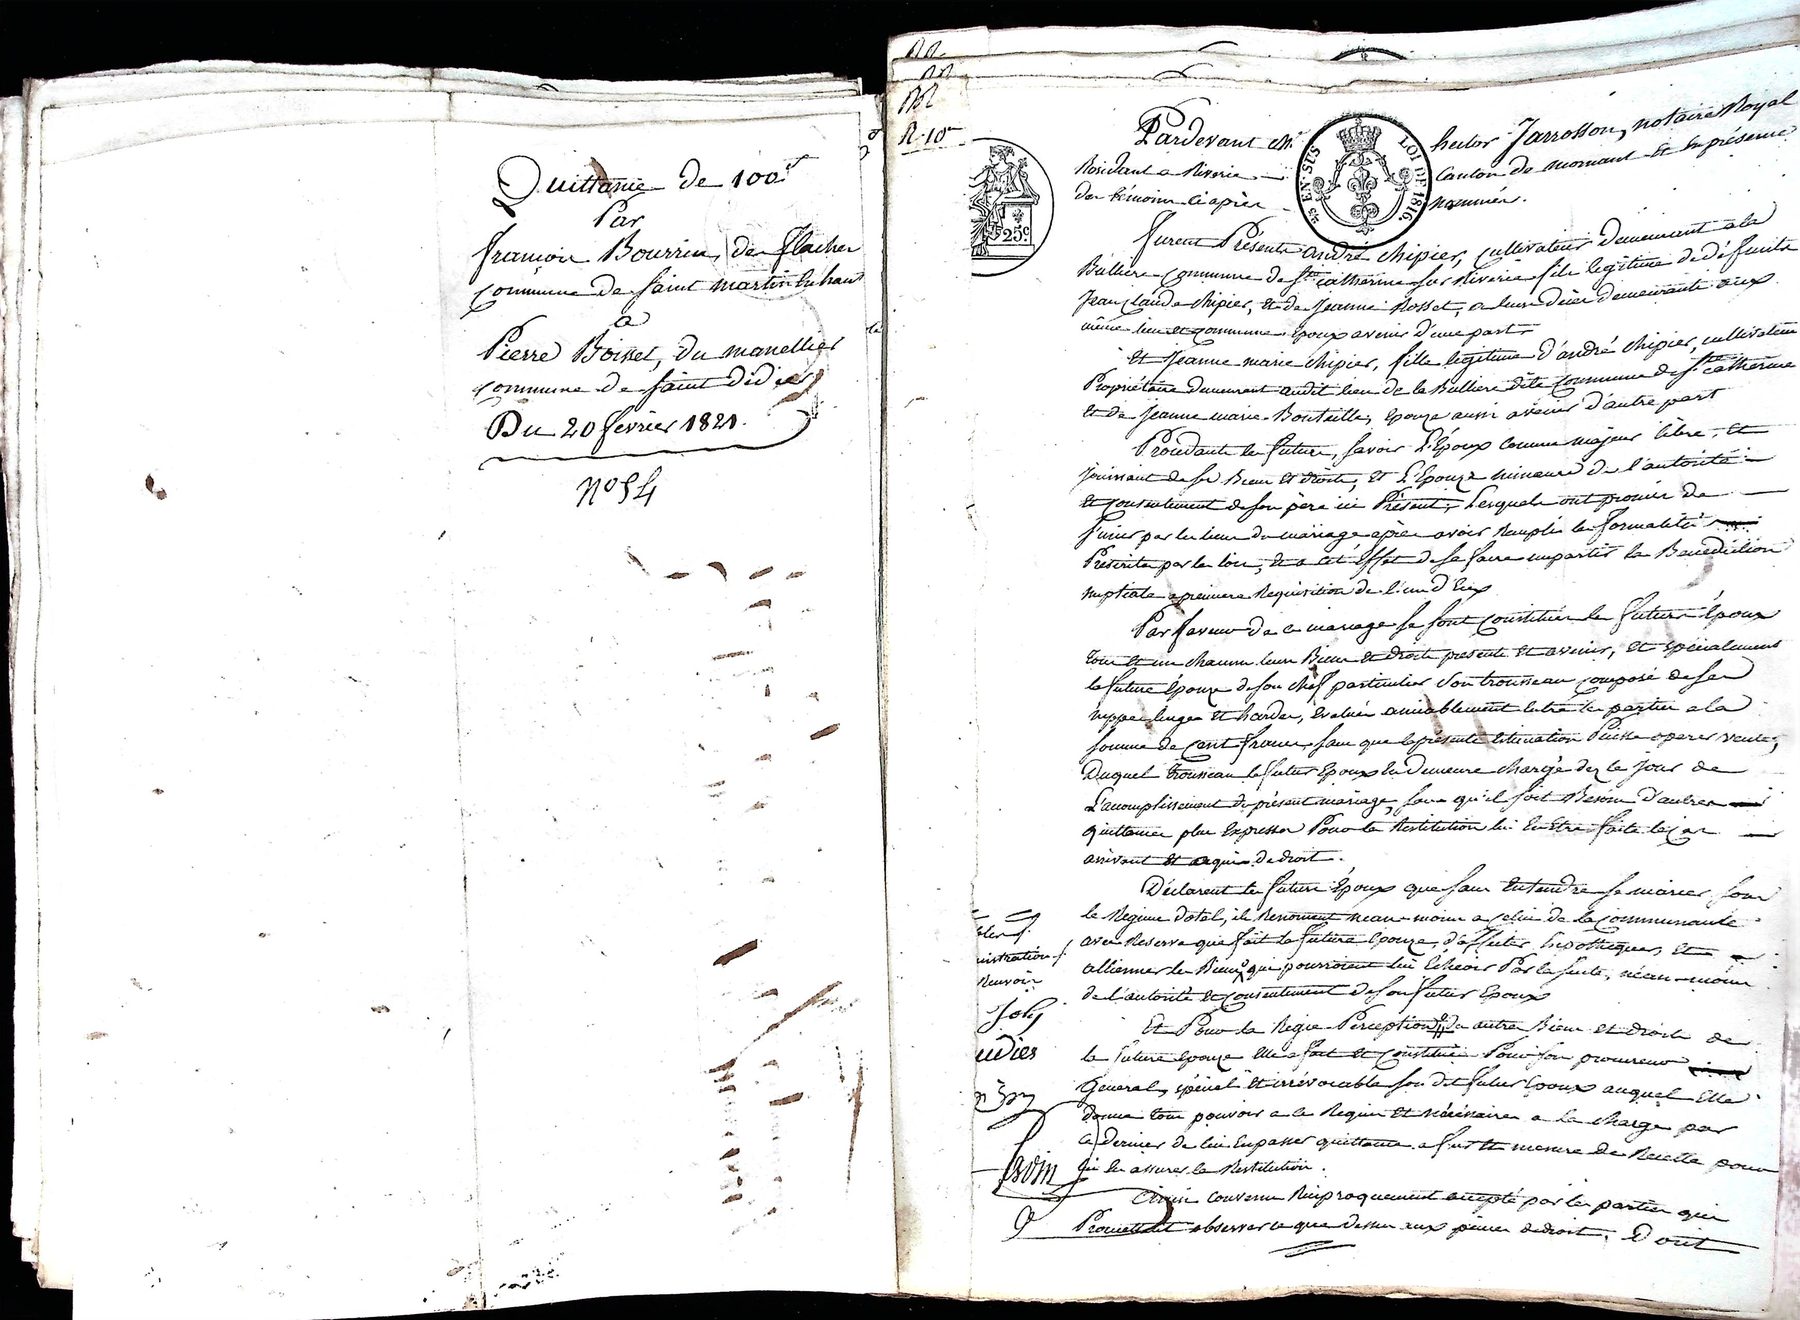 Quittance de 100f
Par
françois Bourrin, de flacher
commune de saint martin en haut
a
Pierre Boisset, du manellier
commune de saint didier
Du 20 février 1821.
N° 54
R. 10
25c
25 EN SUS
LOI DE 1816.
Pardevant Me hector Jarrosson, notaire Royal
Résidant a Riverie canton de mornant et en présence
des témoins ci après nommés.
furent Présents andré chipier, cultivateur demeurant a la
Bulliere commune de Ste catherine sur Riverie fils légitime de défunts
Jean Claude chipier, et de Jeanne Rosset, a leurs décès demeurants aux
même lieu et commune Epoux avenir d'une part
et Jeanne marie chipier, fille legitime d'andré chipier, cultivateur
Propriétaire demeurant audit lieu de la Bulliere dite Commune de Ste catherine
et de Jeanne marie Bouteille, épouze aussi avenir d'autre part
Procédants les futurs, savoir L'Epoux comme majeur libre, et
jouissant de ses Biens et droits, et L'Epouze mineure de l'autorité
et consentement de son père ici Présent; Lesquels ont promis de
s'unir par les liens du mariage après avoir Remplis les formalités
Prescrites par les lois, et a cet effet de se faire impartir la Bénédiction
nuptiale a premiere Requisition de l'un d'Eux
Par faveur de ce mariage se sont constitués les futurs Epoux
tous et un chacun leurs Biens et droits présents et avenirs, et spécialement
la future épouze de son chef particulier son trousseau composé de ses
nippes linges et hardes, évalués amiablement entre les parties a la
somme de Cent francs, sans que la présente Estimation Puisse operer vente,
Duquel trousseau le futur Epoux en demeure chargé dez le jour de
L'acomplissement du présent mariage, sans qu'il soit Besoin d'autres
quittances plus Expresses Pour la Restitution lui En Etre faite le cas
arrivant et a qui de droit.
Déclarent les futurs Epoux que sans Entendre se marier sous
le Regime dotal, ils Renoncent néan-moins a celui de la communauté
avec Reserve que fait la future épouze, d'affecter hipothéquer, et
alliéner les Biens qui pourroient lui Echeoir Par la suite, néan-moins
de l'autorité et Consentement de son futur Epoux
Et Pour la Regie Perception des autres Biens et droits de
la future épouze Elle a fait et Constitué Pour son procureur
General, spécial et irrévocable son dit futur Epoux auquel Elle
donne tous pouvoirs a ce Requis et nécessaires a la charge par
ce dernier de lui En passer quittance a fur et mesure de Recette pour
lui En assurer la Restitution.
Ainsi convenu Réciproquement accepté par les parties qui
Promettent observer ce que dessus aux peines de droit. Dont